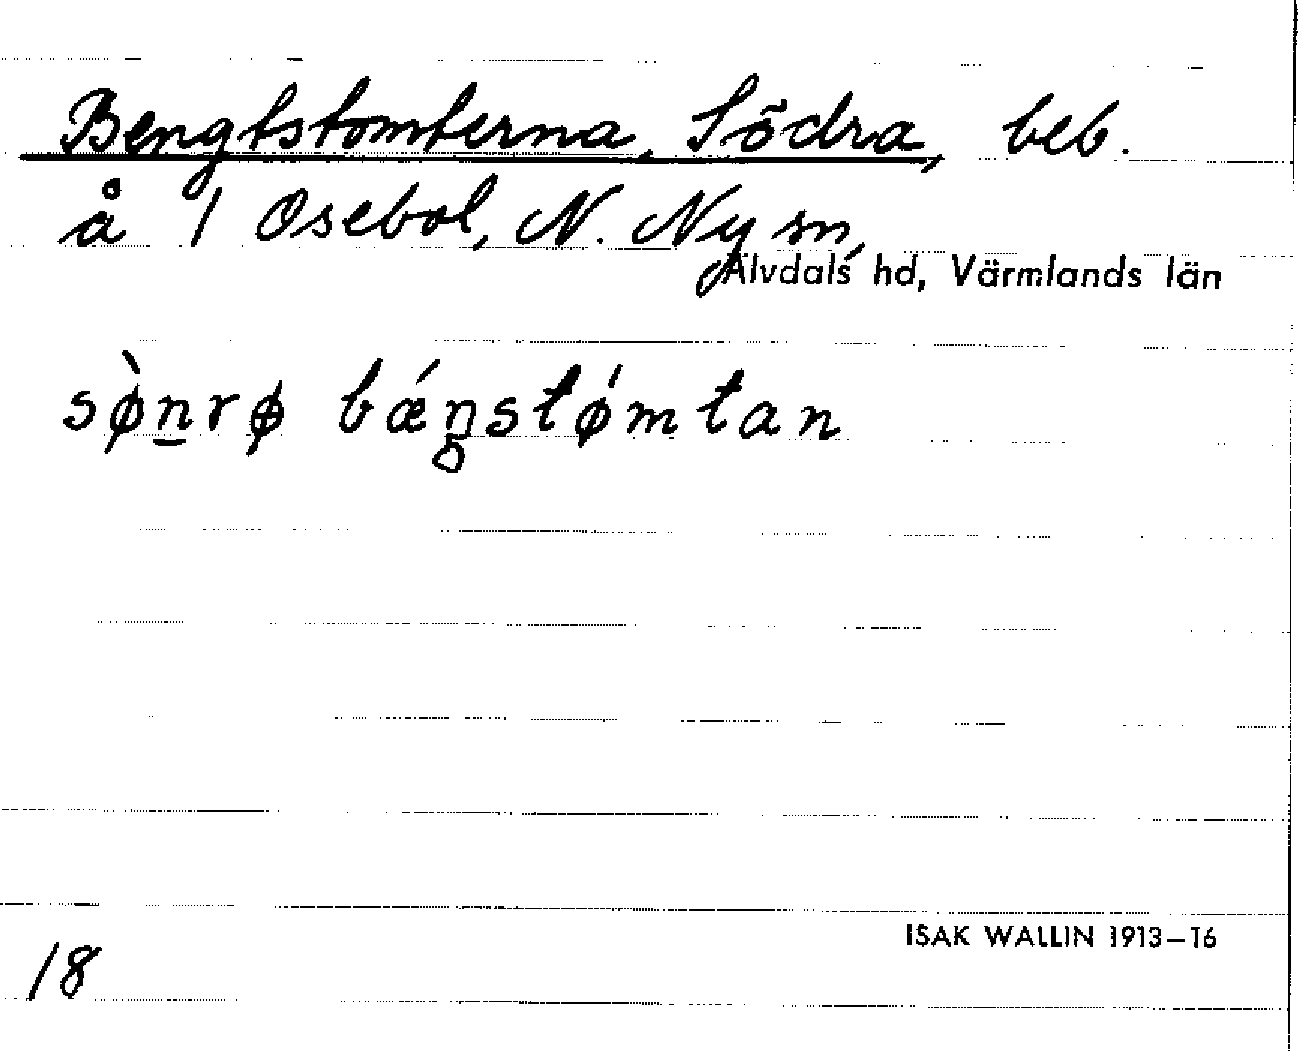 Bengtstomterna, Södra, beb.
å 1 Osebol, N. Ny sn,
Älvdals hd, Värmlands län
sø̀n̲rø bǽn̥stǿmtan
ISAK WALLIN 1913–16
18